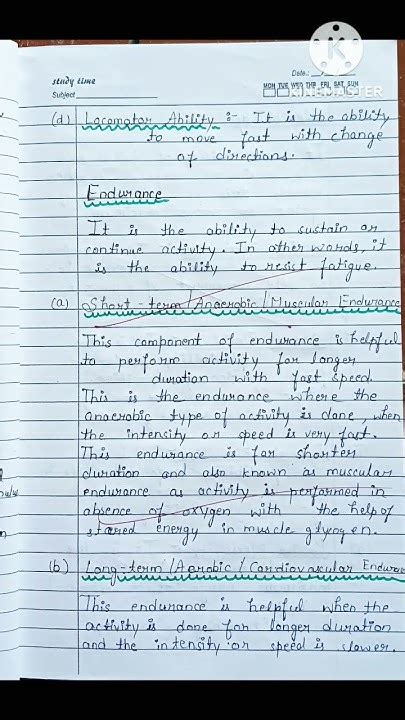 KINEMASTER
Date:
study time
MON TUE WED THR FRI SAT SUN
Subject
(d) Locomotor Ability :- It is the ability
to move fast with change
of directions.
Endurance
It is the ability to sustain or
continue activity. In other words, it
is the ability to resist fatigue.
(a) Short-term/Anaerobic/Muscular Endurance
This component of endurance is helpful
to perform activity for longer
duration with fast speed.
This is the endurance where the
anaerobic type of activity is done, when
the intensity or speed is very fast.
This endurance is for shorter
duration and also known as muscular
endurance as activity is performed in
absence of oxygen with the help of
stored energy in muscle glycogen.
(b) Long-term/Aerobic/Cardiovascular Endura
This endurance is helpful when the
activity is done for longer duration
and the intensity or speed is slower.